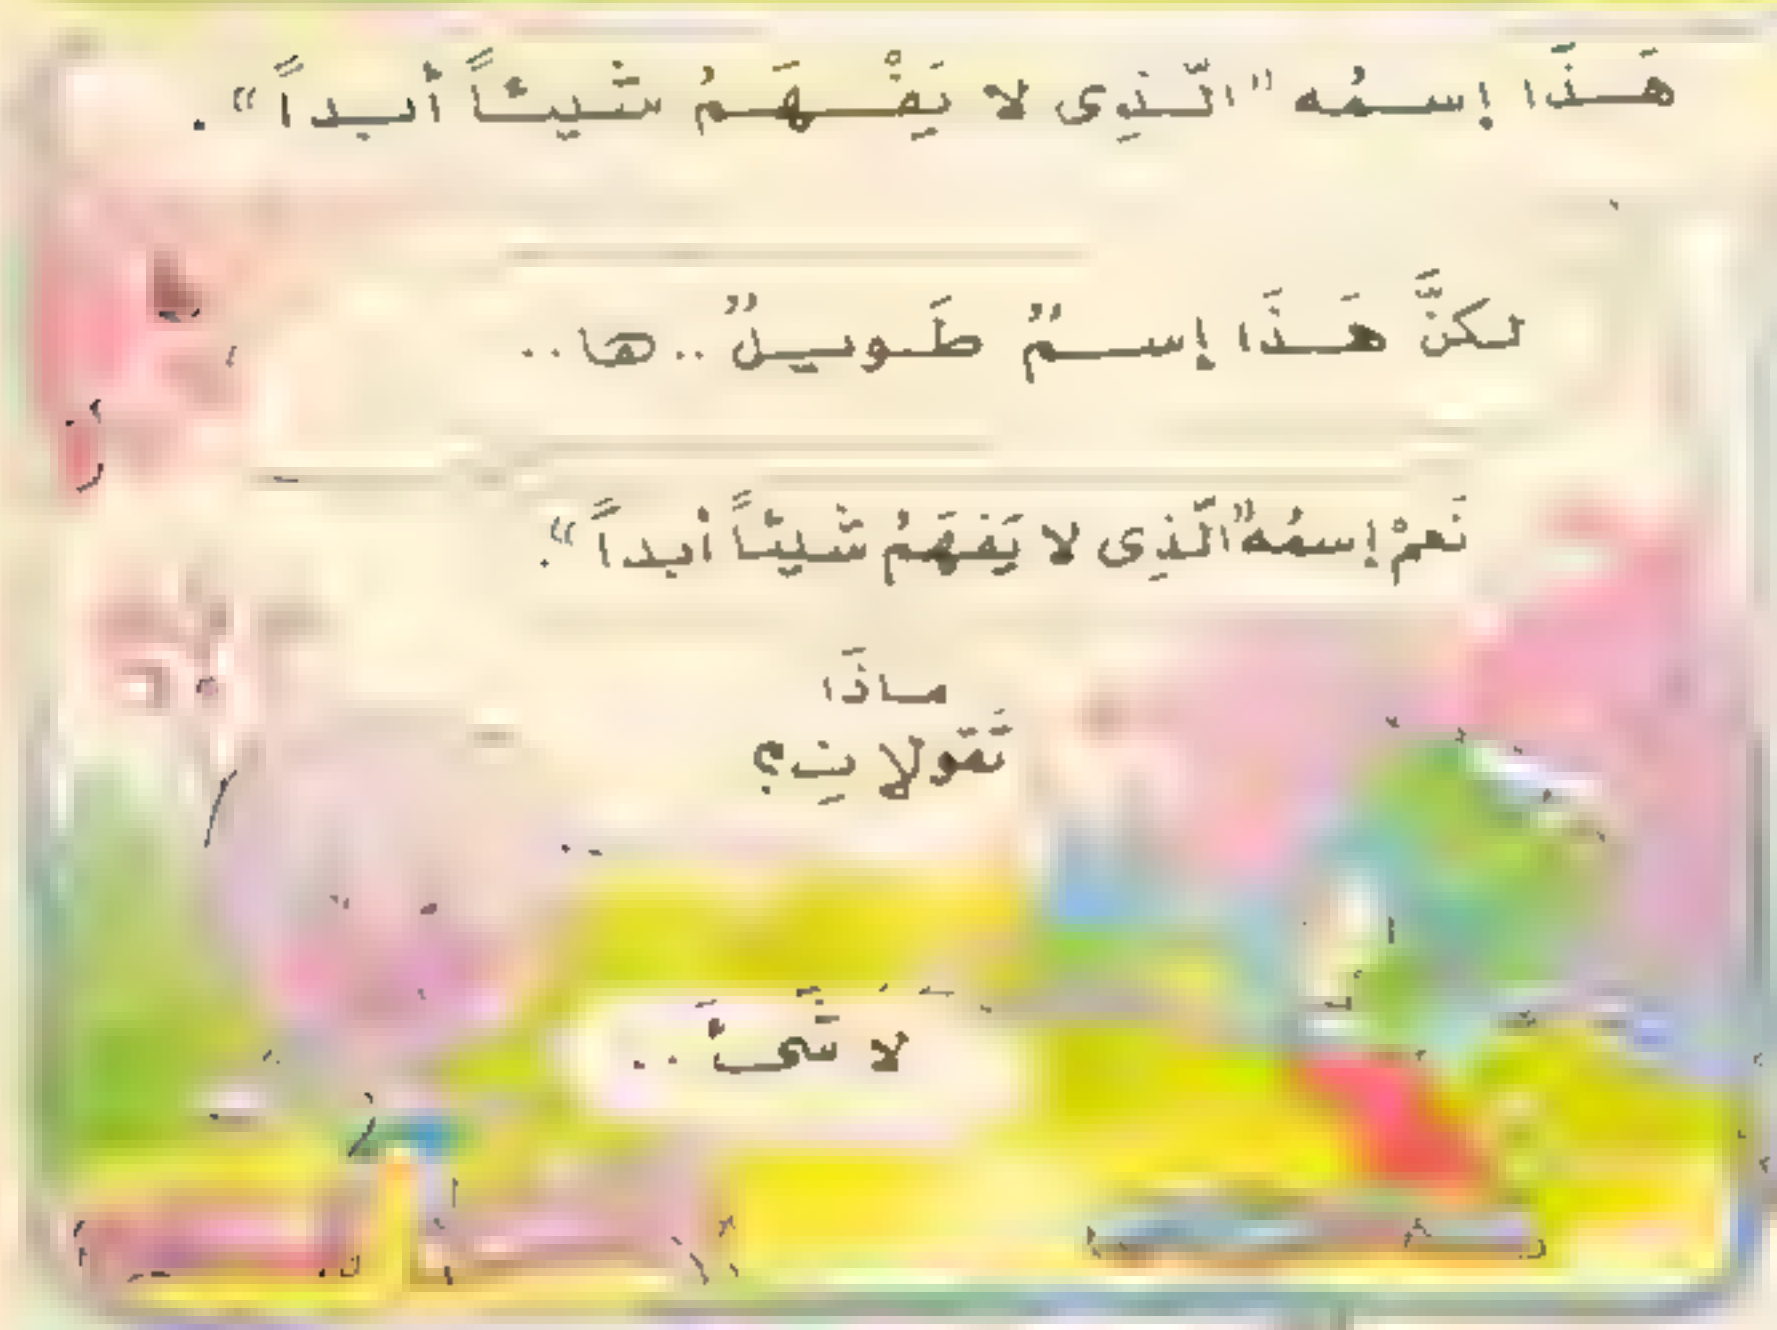 هَذَا إسمُه "الَّذِى لا يَفْهَمُ شَيئاً أبداً".
لكنَّ هَذَا إسمٌ طَويلٌ .. ها ..
نَعمْ إسمُه "الَّذِى لا يَفهَمُ شَيئاً أبداً".
ماذَا
تَقولانِ؟
لا شَّىءَ ..